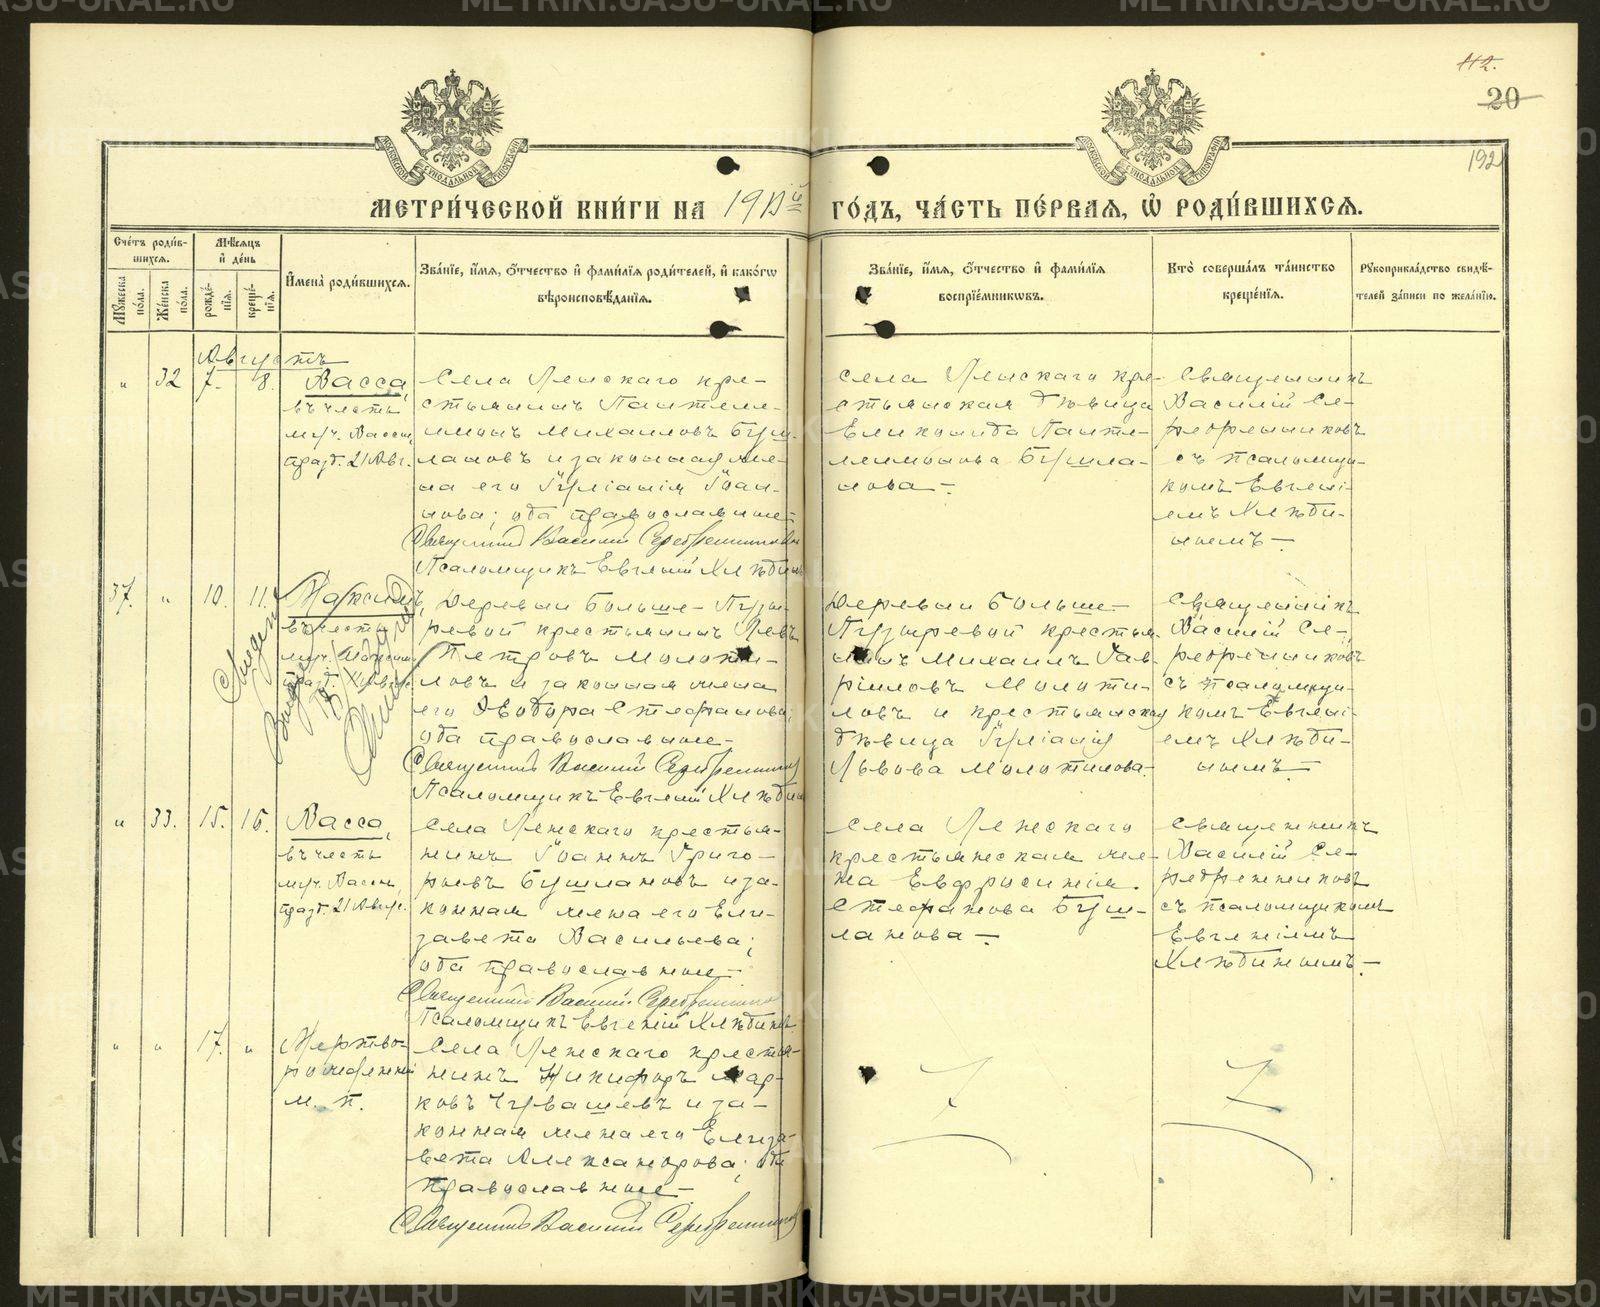 112.
20
192
МЕТРИЧЕСКОЙ КНИГИ НА
ГОДЪ, ЧАСТЬ ПЕРВАЯ, Ѡ РОДИВШИХСЯ.
Счетъ родив-
шихся.
Мѣсяцъ
и день
Мужеска пола.
Женска пола.
рожде-
нія.
креще-
нія.
Имена родившихся.
Званіе, имя, отчество и фамилія родителей, и какогѡ
вѣроисповѣданія.
Званіе, имя, отчество и фамилія
воспріемникѡвъ.
Кто совершалъ таинство
крещенія.
Рукоприкладство свидѣ-
телей записи по желанію.
Августъ
" 32 7. 8.
Васса,
въ честь
муч. Вассы,
празд. 21 Авг.
Села кре-
стьянинъ Пантеле-
имонъ Михаиловъ Буш-
лановъ и законная же-
на его Іуліанія Іоан-
нова; оба православные.
Священникъ Василій Серебренниковъ
Псаломщикъ Евгеній Хлѣбинъ
Села кре-
стьянская дѣвица
Еликонида Панте-
леимонова Бушла-
нова.
Священникъ
Василій Се-
ребренниковъ
съ псаломщи-
комъ Евгені-
емъ Хлѣби-
нымъ.
37. " 10. 11.
Максимъ,
въ честь
муч. Максима
празд. Авг.
Деревни Больше-Пузы-
ревой крестьянинъ Левъ
Петровъ Молоти-
ловъ и законная жена
его Ѳеодора Стефанова;
оба православные.
Священникъ Василій Серебренниковъ
Псаломщикъ Евгеній Хлѣбинъ
Деревни Больше-
Пузыревой крестья-
нинъ Михаилъ Гав-
ріиловъ Молоти-
ловъ и крестьянская
дѣвица Іуліанія
Львова Молотилова.
Священникъ
Василій Се-
ребренниковъ
съ псаломщи-
комъ Евгені-
емъ Хлѣби-
нымъ.
" 33. 15. 16.
Васса,
въ честь
муч. Вассы,
празд. 21 Авгус.
Села крестья-
нинъ Іоаннъ Григо-
рьевъ Бушлановъ и за-
конная жена его Ели-
завета Васильева;
оба православные.
Священникъ Василій Серебренниковъ
Псаломщикъ Евгеній Хлѣбинъ
Села
крестьянская же-
на Евфросинія
Стефанова Буш-
ланова.
Священникъ
Василій Се-
ребренниковъ
съ псаломщикомъ
Евгеніемъ
Хлѣбинымъ.
" " 17. "
Мертво-
рожденный
м. п.
Села крестья-
нинъ Никифоръ Мар-
ковъ Чувашевъ и за-
конная жена его Елиза-
вета Александрова; оба
православные.
Священникъ Василій Серебренниковъ
METRIKI.GASO-URAL.RU